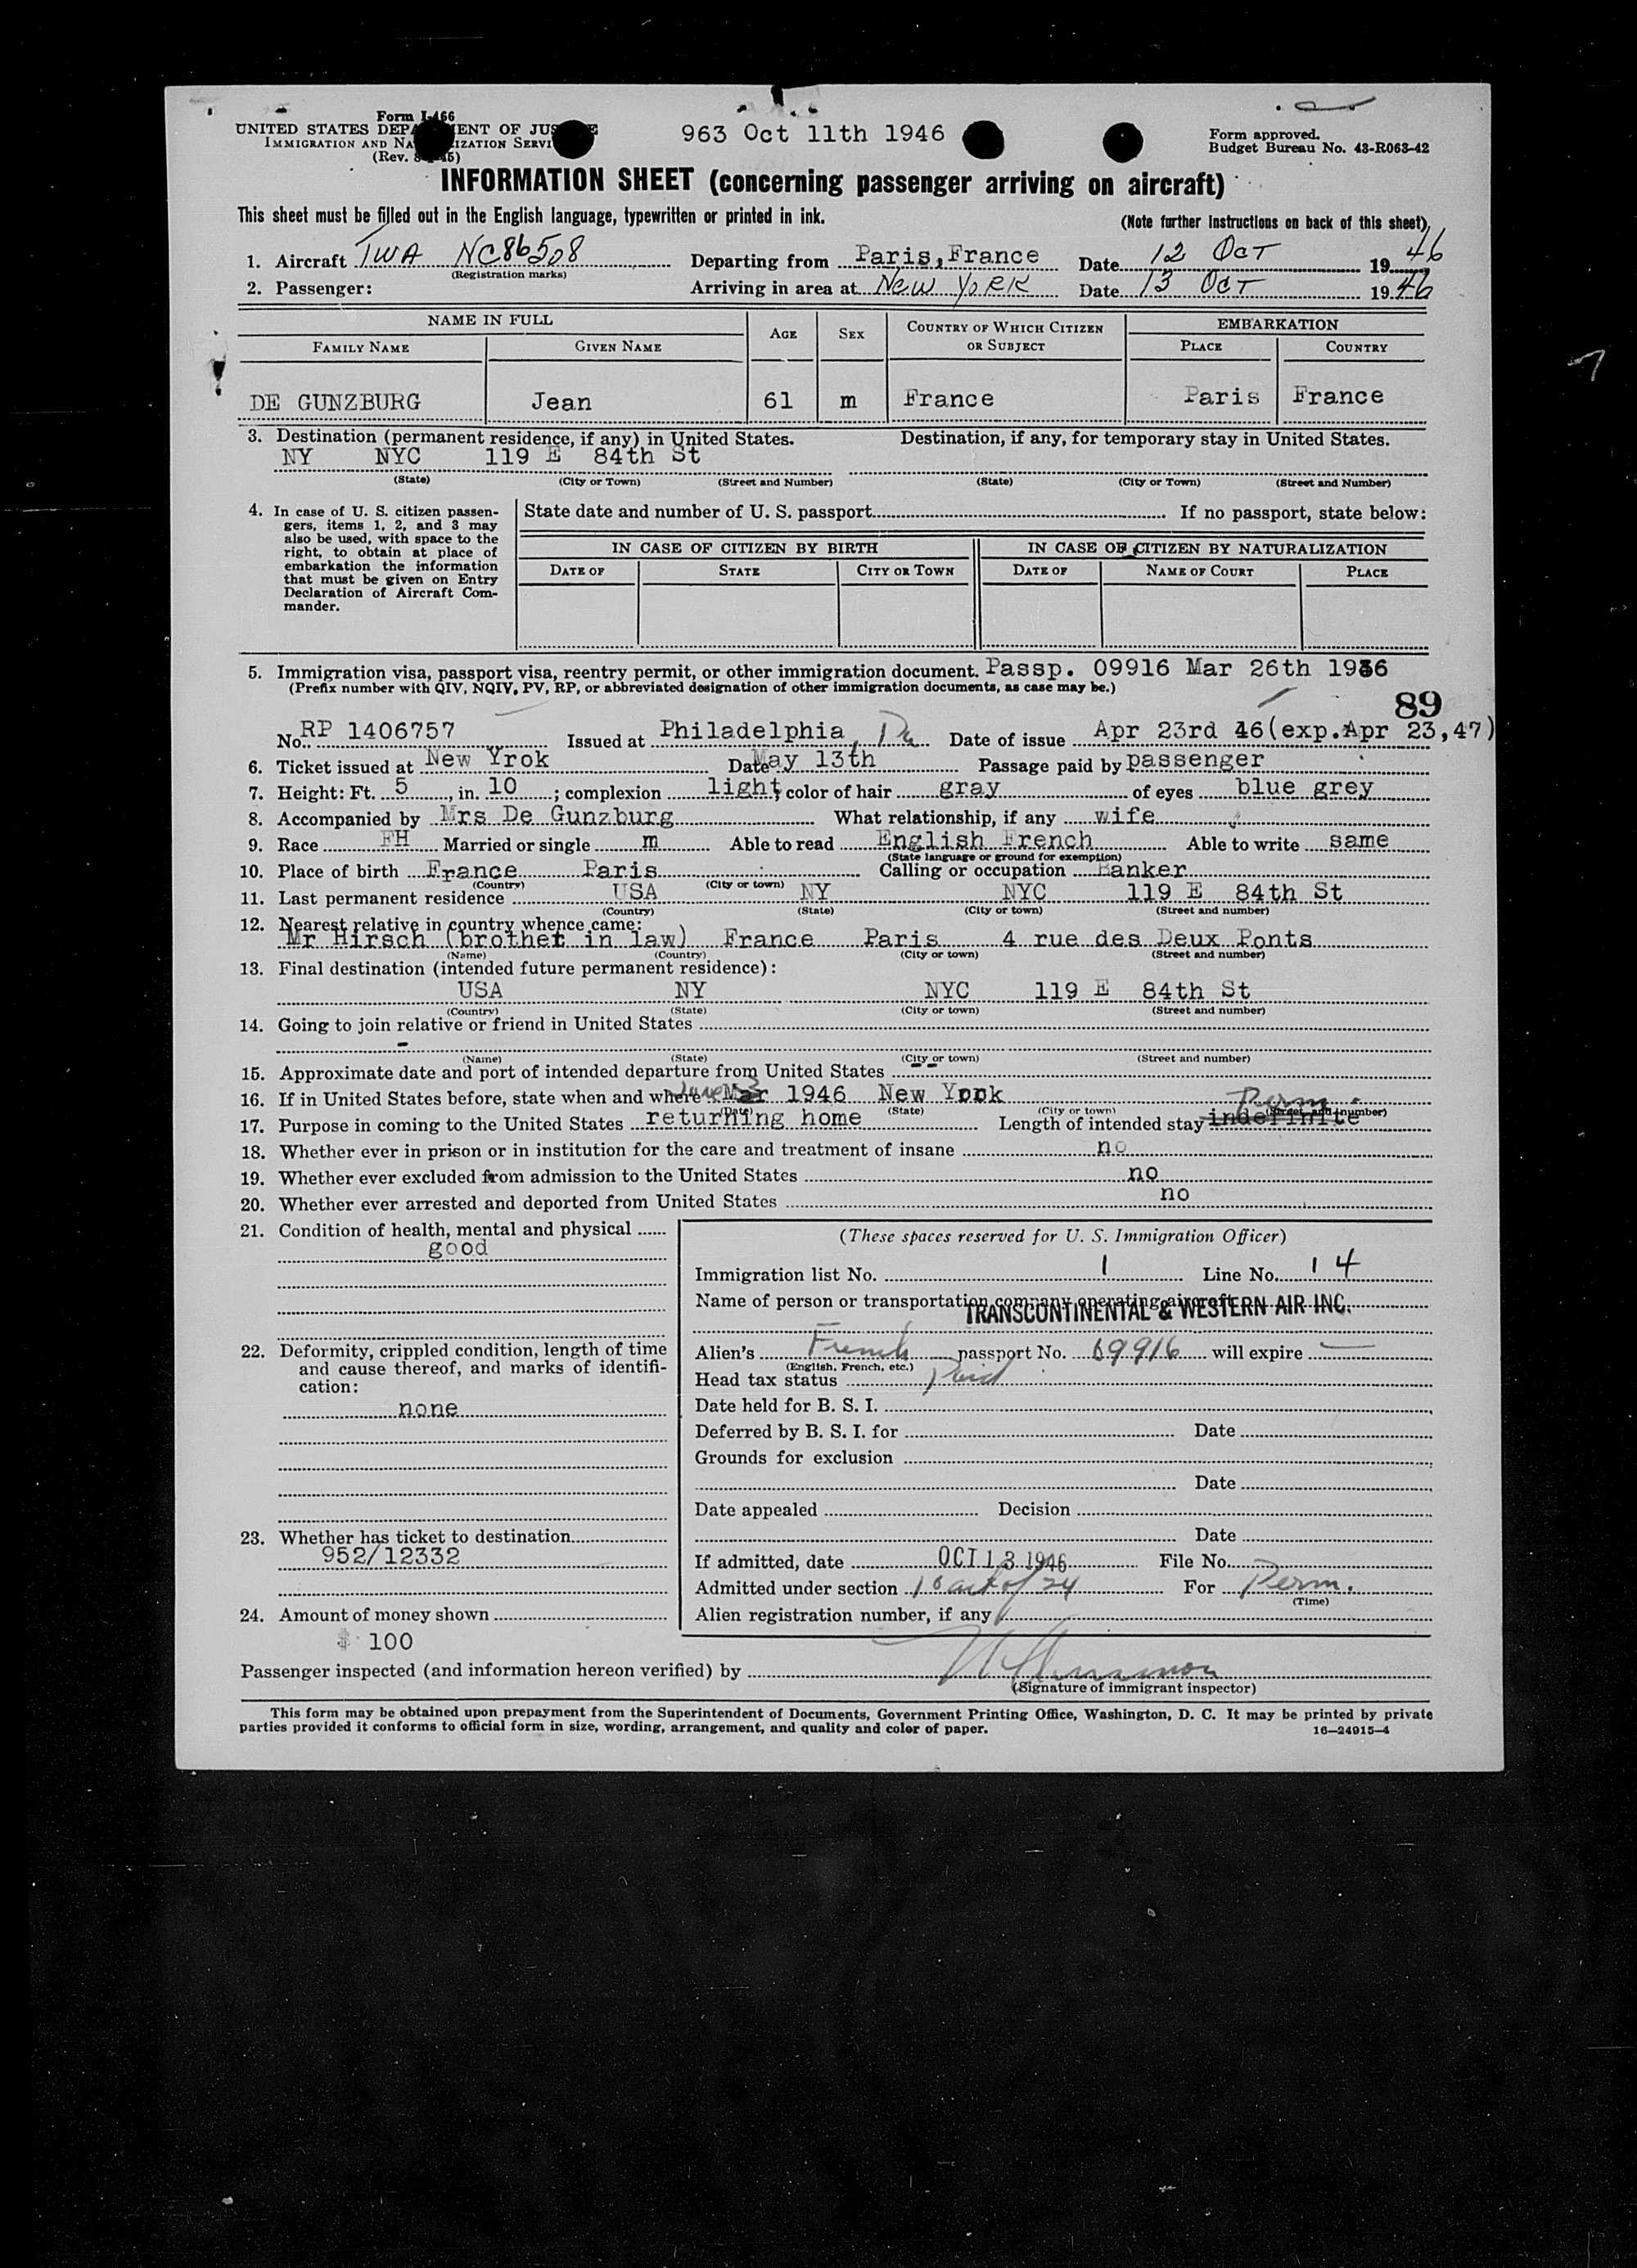 Form I-466
UNITED STATES DEPARTMENT OF JUSTICE
IMMIGRATION AND NATURALIZATION SERVICE
963 Oct 11th 1946
Form approved.
Budget Bureau No. 43-R063-42
INFORMATION SHEET (concerning passenger arriving on aircraft)
This sheet must be filled out in the English language, typewritten or printed in ink.
(Note further instructions on back of this sheet)
1. Aircraft TWA NC86508 Departing from Paris, France Date 12 OCT 1946
(Registration marks)
2. Passenger: Arriving in area at NEW YORK Date 13 OCT 1946
NAME IN FULL AGE SEX COUNTRY OF WHICH CITIZEN OR SUBJECT EMBARKATION
FAMILY NAME GIVEN NAME PLACE COUNTRY
DE GUNZBURG Jean 61 m France Paris France
3. Destination (permanent residence, if any) in United States. Destination, if any, for temporary stay in United States.
NY NYC 119 E 84th St
(State) (City or Town) (Street and Number) (State) (City or Town) (Street and Number)
4. In case of U. S. citizen passengers, items 1, 2, and 3 may also be used, with space to the right, to obtain at place of embarkation the information that must be given on Entry Declaration of Aircraft Commander.
State date and number of U. S. passport If no passport, state below:
IN CASE OF CITIZEN BY BIRTH IN CASE OF CITIZEN BY NATURALIZATION
DATE OF STATE CITY OR TOWN DATE OF NAME OF COURT PLACE
5. Immigration visa, passport visa, reentry permit, or other immigration document. Passp. 09916 Mar 26th 1946
(Prefix number with QIV, NQIV, PV, RP, or abbreviated designation of other immigration documents, as case may be.)
89
No. RP 1406757 Issued at Philadelphia, Pa Date of issue Apr 23rd 46(exp.Apr 23,47)
6. Ticket issued at New Yrok Date May 13th Passage paid by passenger
7. Height: Ft. 5, in. 10; complexion light; color of hair gray of eyes blue grey
8. Accompanied by Mrs De Gunzburg What relationship, if any wife
9. Race FH Married or single m Able to read English French Able to write same
(State language or ground for exemption)
10. Place of birth France Paris Calling or occupation Banker
(Country) (City or town)
11. Last permanent residence USA NY NYC 119 E 84th St
(Country) (State) (City or town) (Street and number)
12. Nearest relative in country whence came:
Mr Hirsch (brother in law) France Paris 4 rue des Deux Ponts
(Name) (Country) (City or town) (Street and number)
13. Final destination (intended future permanent residence):
USA NY NYC 119 E 84th St
(Country) (State) (City or town) (Street and number)
14. Going to join relative or friend in United States
-
(Name) (State) (City or town) (Street and number)
15. Approximate date and port of intended departure from United States - -
16. If in United States before, state when and where June 3 Mar 1946 New York
(Date) (State) (City or town) (Street and number)
17. Purpose in coming to the United States returning home Length of intended stay indefinite Perm.
18. Whether ever in prison or in institution for the care and treatment of insane no
19. Whether ever excluded from admission to the United States no
20. Whether ever arrested and deported from United States no
21. Condition of health, mental and physical
good
22. Deformity, crippled condition, length of time and cause thereof, and marks of identification:
none
23. Whether has ticket to destination
952/12332
24. Amount of money shown
$ 100
(These spaces reserved for U. S. Immigration Officer)
Immigration list No. 1 Line No. 14
Name of person or transportation company operating aircraft
TRANSCONTINENTAL & WESTERN AIR INC.
Alien's French passport No. 09916 will expire —
(English, French, etc.)
Head tax status Paid
Date held for B. S. I.
Deferred by B. S. I. for Date
Grounds for exclusion
Date
Date appealed Decision
Date
If admitted, date OCT 13 1946 File No.
Admitted under section 10 act of 24 For Perm.
(Time)
Alien registration number, if any
Passenger inspected (and information hereon verified) by
(Signature of immigrant inspector)
This form may be obtained upon prepayment from the Superintendent of Documents, Government Printing Office, Washington, D. C. It may be printed by private
parties provided it conforms to official form in size, wording, arrangement, and quality and color of paper. 16—24915-4